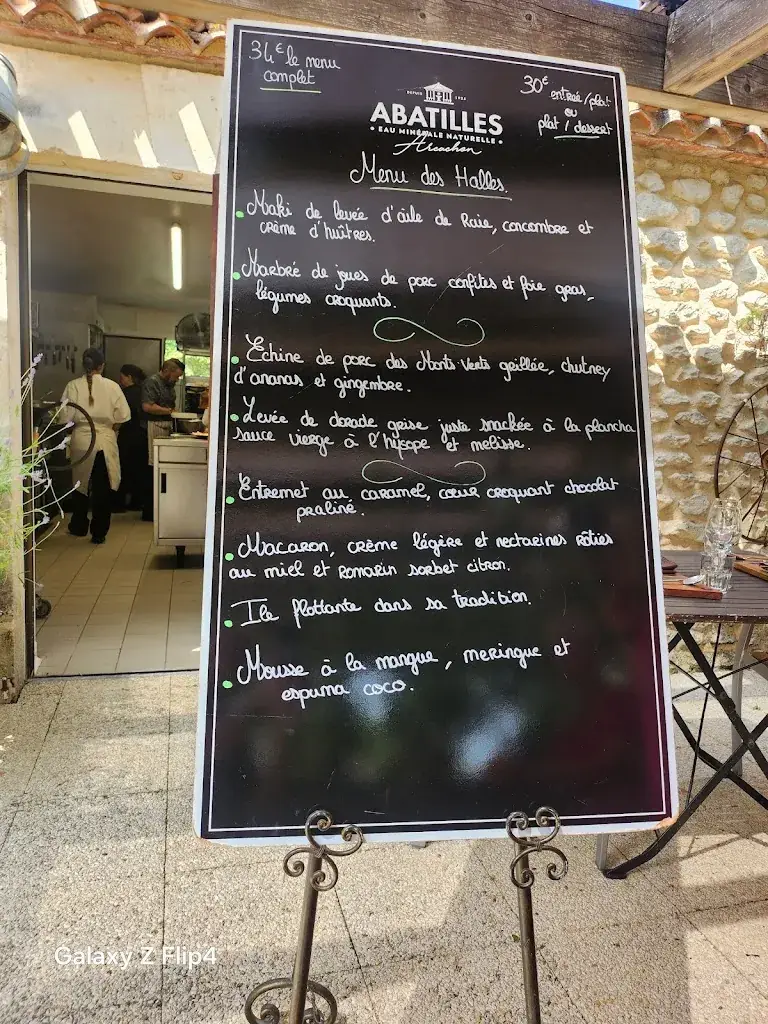 34€ le menu
complet
30€
entrée/plat
ou
plat / dessert
DEPUIS 1925
ABATILLES
• EAU MINÉRALE NATURELLE •
Arcachon
Menu des Halles.
• Maki de levée d'aile de Raie, concombre et
crème d'huîtres.
• Marbré de joues de porc confites et foie gras,
légumes croquants.
• Echine de porc des Monts verts grillée, chutney
d'ananas et gingembre.
• Levée de dorade grise juste snackée à la plancha
sauce vierge à l'hysope et melisse.
• Entremet au caramel, cœur croquant chocolat
praliné.
• Macaron, crème légère et nectarines rôties
au miel et romarin sorbet citron.
• Ile flottante dans sa tradition.
• Mousse à la mangue, meringue et
espuma coco.
Galaxy Z Flip4